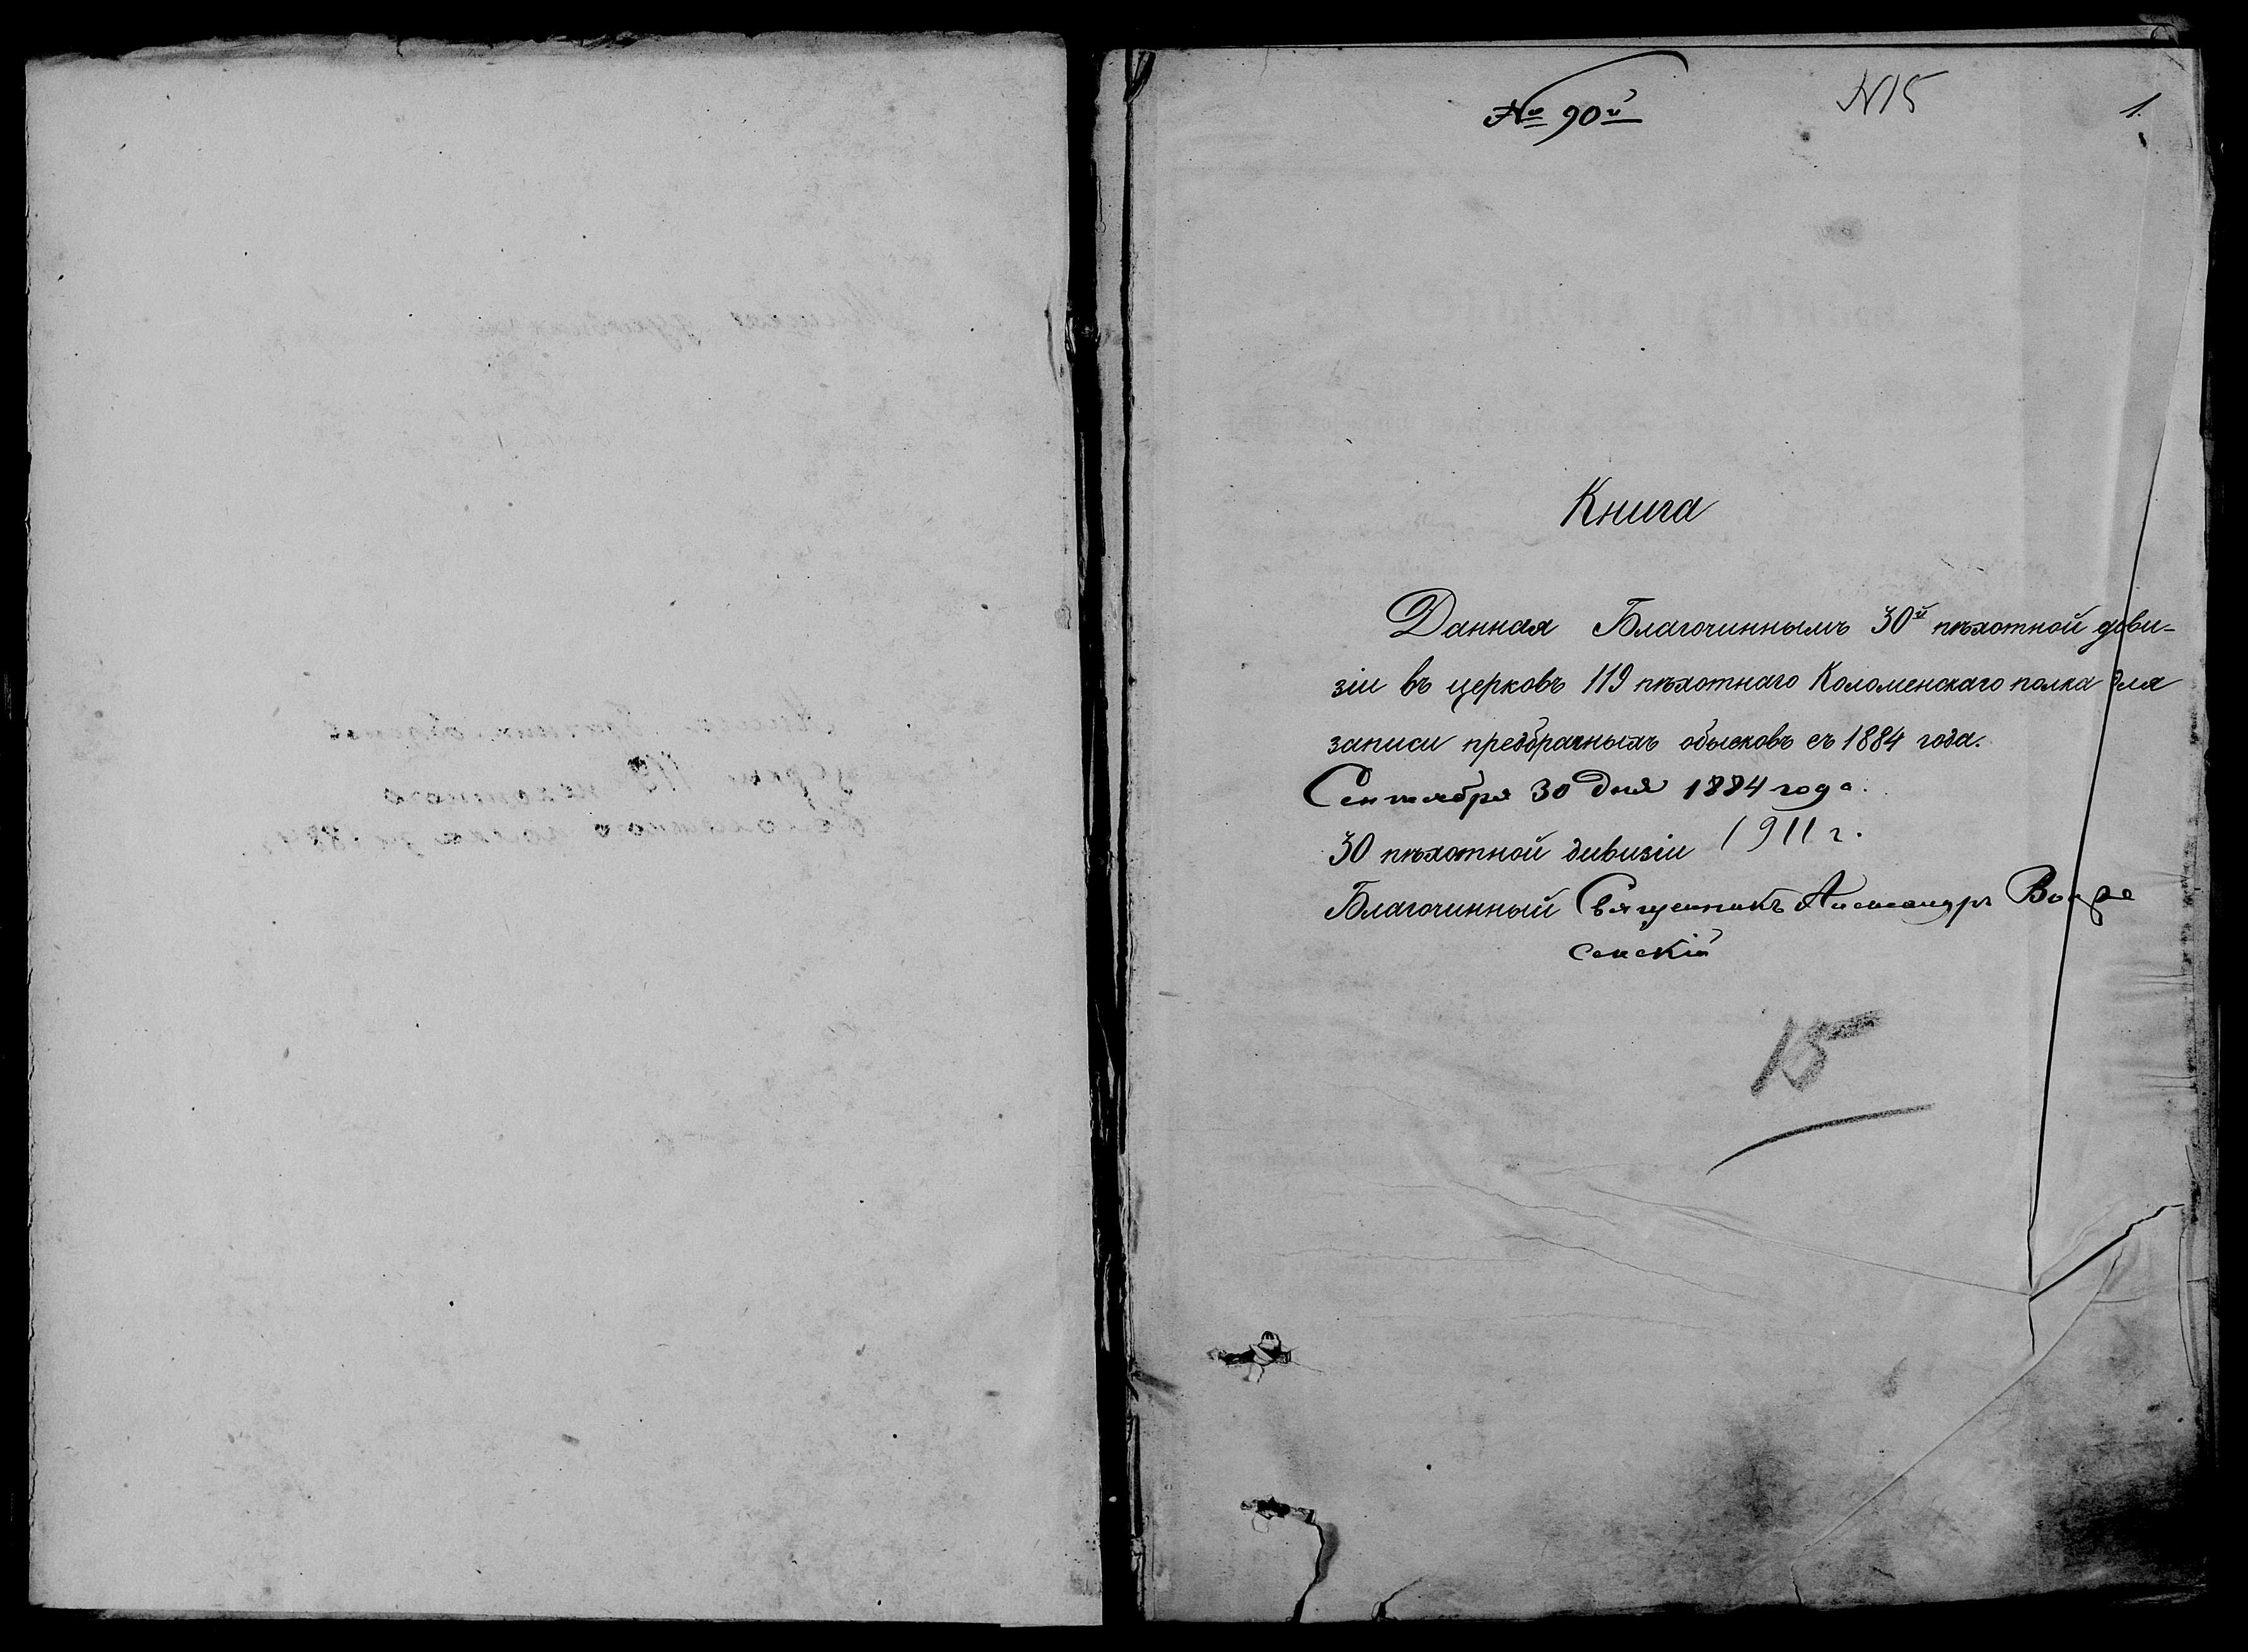 № 90й
N15
1.
Книга
Данная Благочиннымъ 30й пѣхотной диви-
зіи въ церковь 119 пѣхотнаго Коломенскаго полка для
записи предбрачныхъ обысковъ съ 1884 года.
Сентября 30 дня 1884 года.
30 пѣхотной дивизіи 1911 г.
Благочинный Священникъ Александръ Воскре
сенскій
15